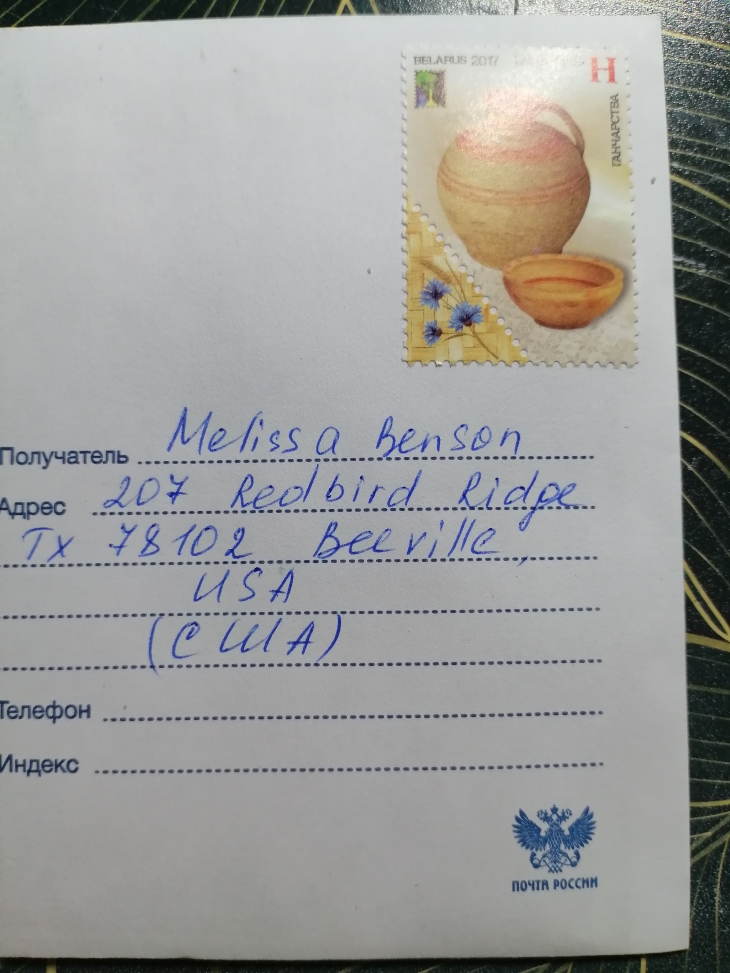 BELARUS 2017
H
ГАНЧАРСТВА
Получатель Melissa Benson
Адрес 207 Redbird Ridge
Tx 78102 Beeville,
USA
(США)
Телефон
Индекс
ПОЧТА РОССИИ